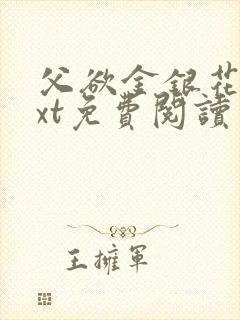 父欲金银花
xt免費閱讀
王擁軍